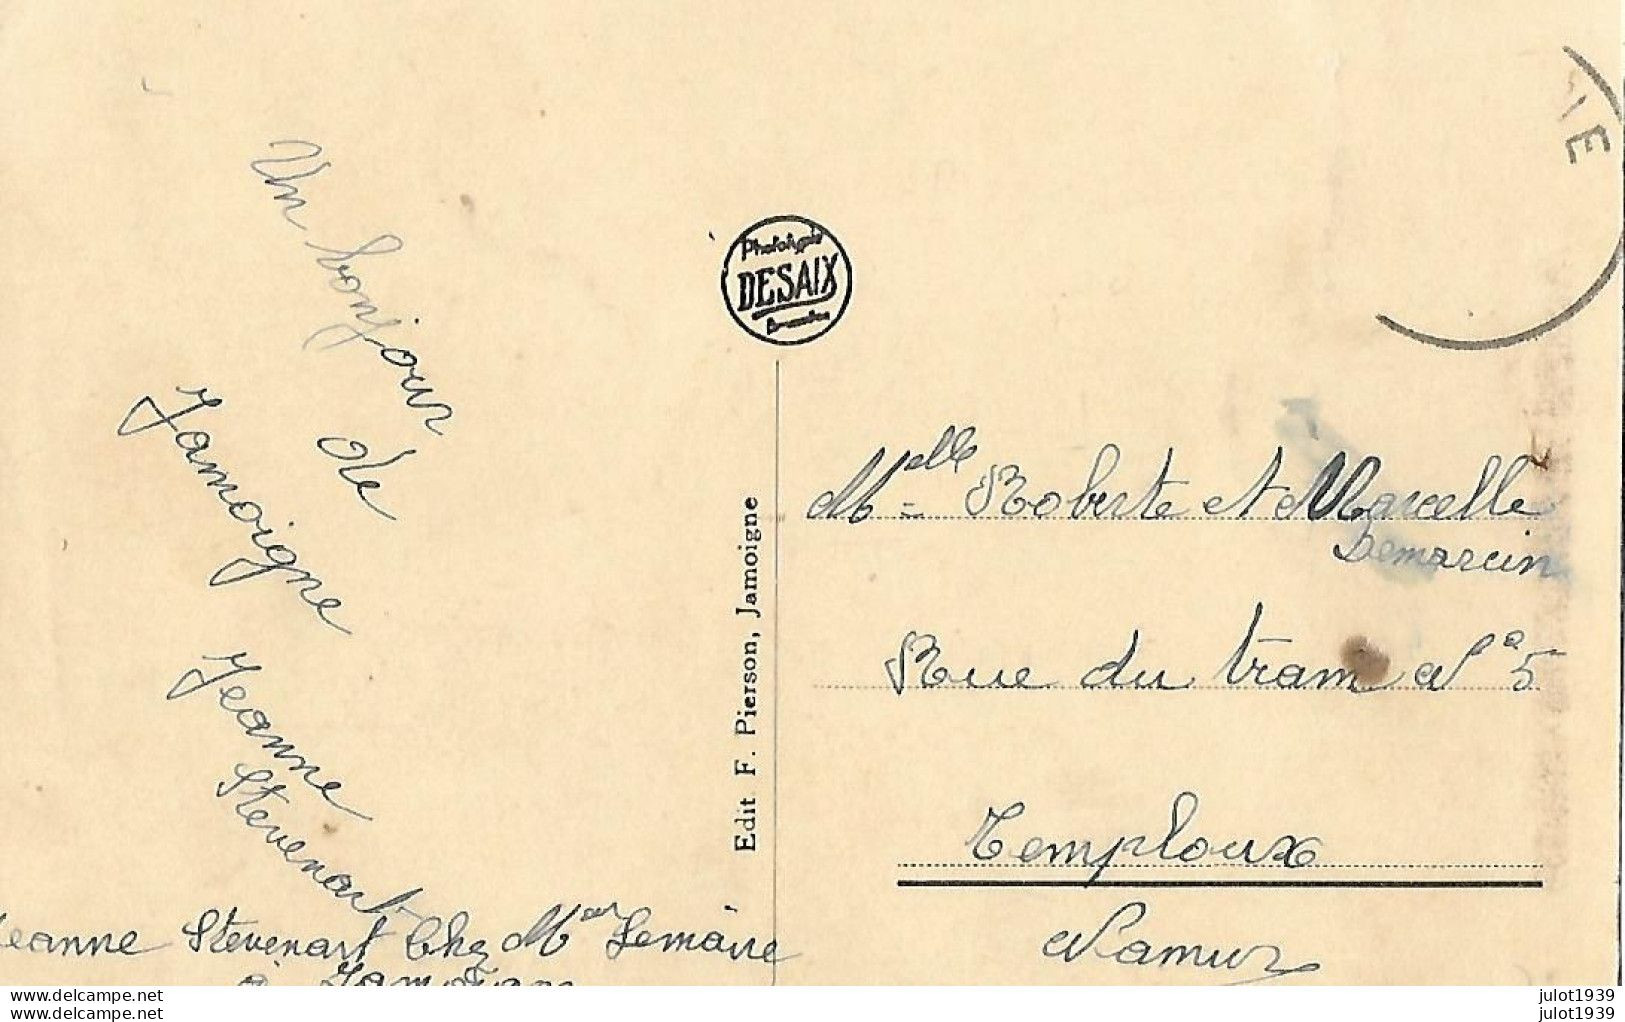 Un bonjour
de
Jamoigne
Jeanne
Stevenart
Jeanne Stevenart Chez Mr Lemaire
à Jamoigne
Phototypie
DESAIX
Bruxelles
Edit. F. Pierson, Jamoigne
IE
Melle Roberte et Marcelle
Demarcin
Rue du tram N° 5
Temploux
Namur
www.delcampe.net
www.delcampe.net
julot1939
julot1939